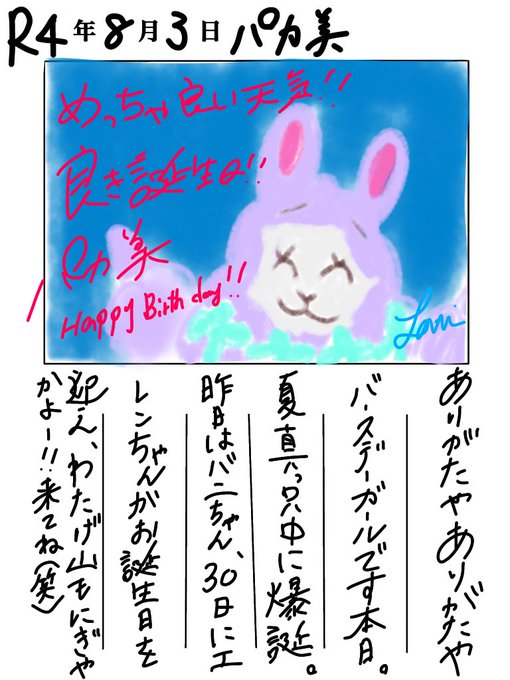 R4年8月3日 パカ美
めっちゃ良い天気!!
良き誕生日!!
パカ美
Happy Birthday!!
Lovi
ありがたやありがたや
バースデーガールです本日。
夏真っ只中に爆誕。
昨日はバニちゃん、30日にエ
レンちゃんがお誕生日を
迎え、わたげ山もにぎや
かよー!!来てね(笑)